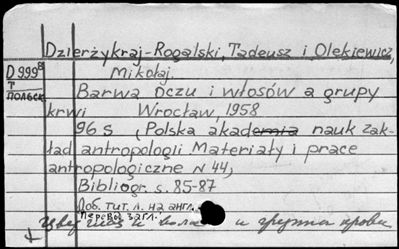 Dzierżykraj-Rogalski, Tadeusz i Olekiewicz,
Mikołaj.
D 999⁸
Т
ПОЛЬСК
Barwa oczu i włosów a grupy
krwi Wrocław, 1958
96 s (Polska akademia nauk zak-
ład antropologii Materiały i prace
antropologiczne N 44)
Bibliogr. s. 85-87
Доб. тит. л. на англ.
перевод загл.
Цвет глаз и волос и группа крови